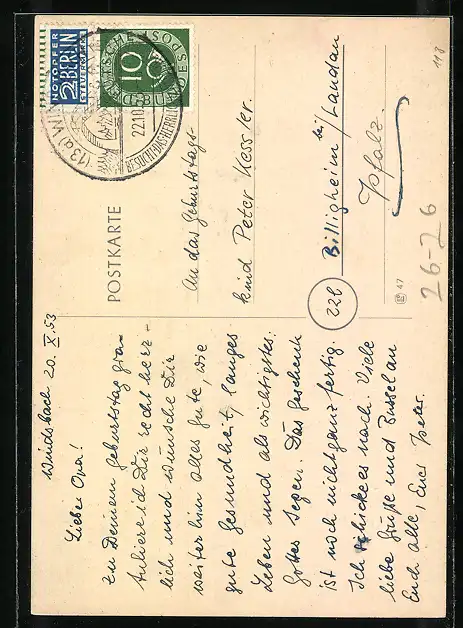 Windsbach 20. X. 53
Lieber Opa!
Zu Deinem Geburtstag gra-
tuliere ich Dir recht herz-
lich und wünsche Dir
weiterhin alles Gute, wie
gute Gesundheit, langes
Leben und als wichtigstes:
Gottes Segen. Das Geschenk
ist noch nicht ganz fertig.
Ich schicke es nach. Viele
liebe Grüße und Bussel an
Euch alle, Euer Peter.
NOTOPFER
2 BERLIN
STEUERMARKE
DEUTSCHE BUNDESPOST
10
(13a) WIN
22.10
POSTKARTE
An das Geburtstags-
kind Peter Kessler.
(22b)
Billigheim bei/Landau
Pfalz.
47
118
26-26